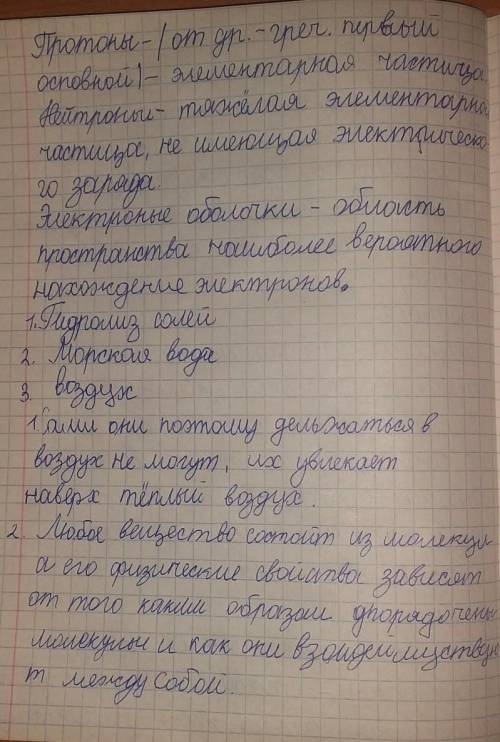 Протоны-(от др.-греч. первый
основной)- элементарная частица.
Нейтроны- тяжёлая элементарная
частица, не имеющая электрическо
го заряда.
Электроные оболочки - область
пространства наиболее вероятного
нахождение электронов.
1. Гидролиз солей
2. Морская вода
3. воздух
1. Сами они поэтому дельжаться в
воздух не могут, их увлекает
наверх тёплый воздух.
2. Любое вещество состоит из молекул
а его физические свойства зависят
от того каким образом упорядочены
молекулы и как они взаидеимуствую
т между собой.